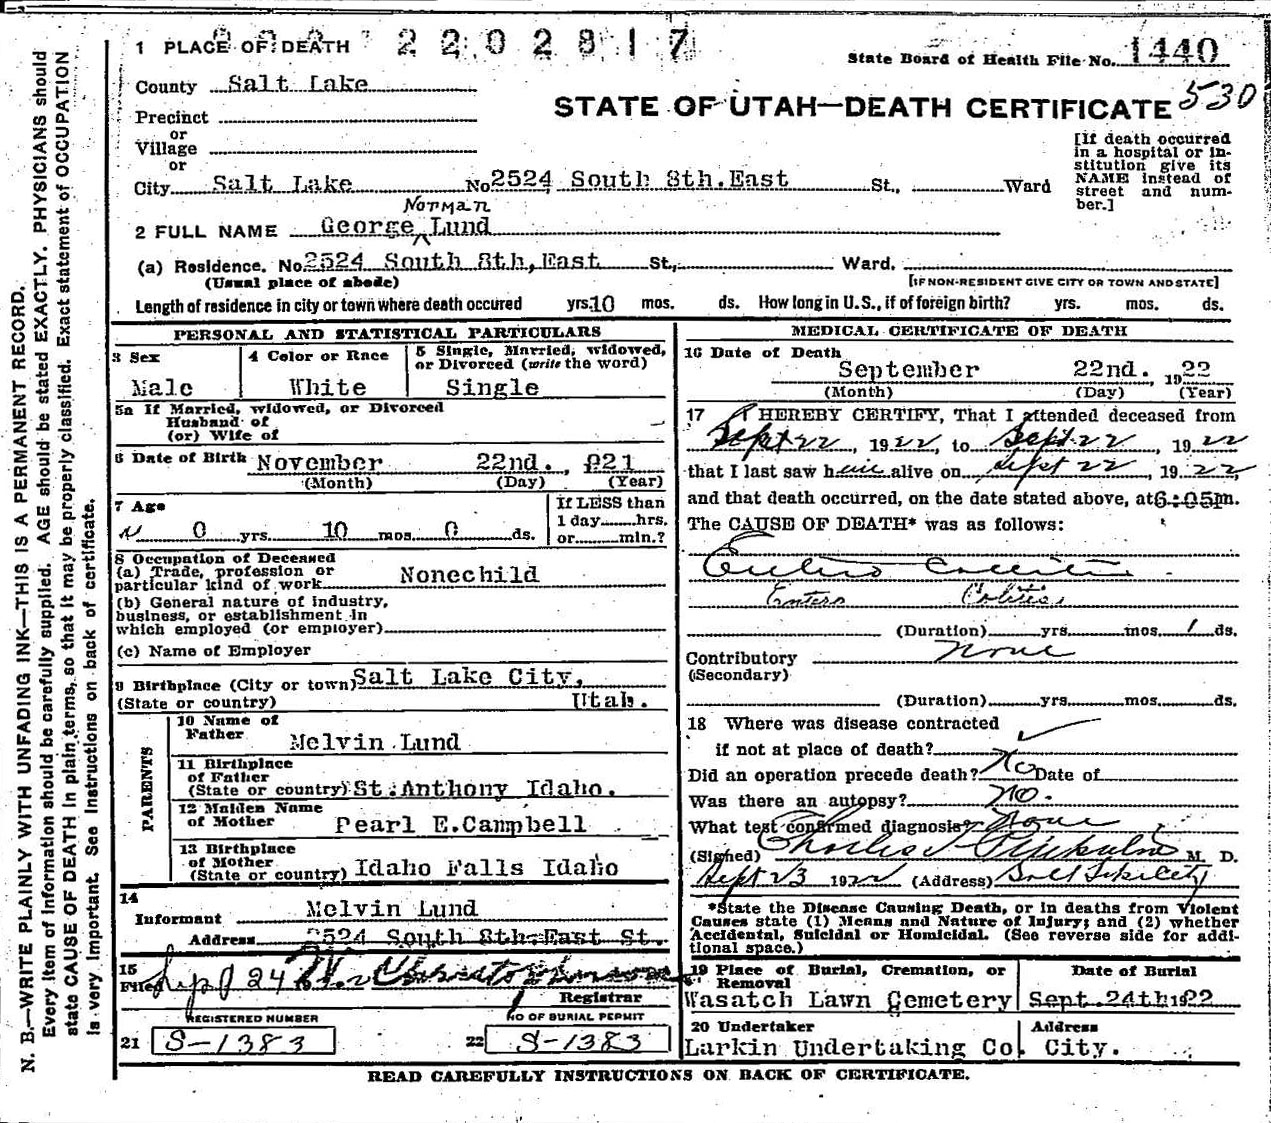 1 PLACE OF DEATH
2202817
State Board of Health File No. 1440
County Salt Lake
530
STATE OF UTAH—DEATH CERTIFICATE
Precinct
or
Village
or
City Salt Lake No 2524 South 8th. East St., Ward
[If death occurred
in a hospital or in-
stitution give its
NAME instead of
street and num-
ber.]
Norman
2 FULL NAME George ^ Lund
(a) Residence. No 2524 South 8th, East St., Ward.
(Usual place of abode) [IF NON-RESIDENT GIVE CITY OR TOWN AND STATE]
Length of residence in city or town where death occured yrs. 10 mos. ds. How long in U.S., if of foreign birth? yrs. mos. ds.
PERSONAL AND STATISTICAL PARTICULARS
3 Sex
Male
4 Color or Race
White
5 Single, Married, widowed,
or Divorced (write the word)
Single
5a If Married, widowed, or Divorced
Husband of
(or) Wife of
6 Date of Birth November 22nd., 921
(Month) (Day) (Year)
7 Age
0 yrs. 10 mos. 0 ds.
If LESS than
1 day hrs.
or min.?
8 Occupation of Deceased
(a) Trade, profession or
particular kind of work Nonechild
(b) General nature of industry,
business, or establishment in
which employed (or employer)
(c) Name of Employer
9 Birthplace (City or town) Salt Lake City,
(State or country) Utah.
PARENTS
10 Name of
Father Melvin Lund
11 Birthplace
of Father
(State or country) St. Anthony Idaho.
12 Maiden Name
of Mother Pearl E. Campbell
13 Birthplace
of Mother
(State or country) Idaho Falls Idaho
14
Informant Melvin Lund
Address 2524 South 8th. East St.
15
Filed Sep 24
Registrar
REGISTERED NUMBER
21 S-1383
NO OF BURIAL PERMIT
22 S-1383
MEDICAL CERTIFICATE OF DEATH
16 Date of Death
September 22nd. 1922
(Month) (Day) (Year)
17 I HEREBY CERTIFY, That I attended deceased from
Sept 22, 1922, to Sept 22, 1922
that I last saw him alive on Sept 22, 1922,
and that death occurred, on the date stated above, at 6:05 p m.
The CAUSE OF DEATH* was as follows:
Entero Colitis
Entero Colitis
(Duration) yrs. mos. 1 ds.
Contributory None
(Secondary)
(Duration) yrs. mos. ds.
18 Where was disease contracted
if not at place of death?
Did an operation precede death? No Date of
Was there an autopsy? No.
What test confirmed diagnosis? None
(Signed) Charles M. D.
Sept 23 1922 (Address) Salt Lake City
*State the Disease Causing Death, or in deaths from Violent
Causes state (1) Means and Nature of Injury; and (2) whether
Accidental, Suicidal or Homicidal. (See reverse side for addi-
tional space.)
19 Place of Burial, Cremation, or
Removal
Wasatch Lawn Cemetery
Date of Burial
Sept. 24th 1922
20 Undertaker
Larkin Undertaking Co.
Address
City.
READ CAREFULLY INSTRUCTIONS ON BACK OF CERTIFICATE.
N. B.—WRITE PLAINLY WITH UNFADING INK—THIS IS A PERMANENT RECORD.
Every item of information should be carefully supplied. AGE should be stated EXACTLY. PHYSICIANS should
state CAUSE OF DEATH in plain terms, so that it may be properly classified. Exact statement of OCCUPATION
is very important. See Instructions on back of certificate.